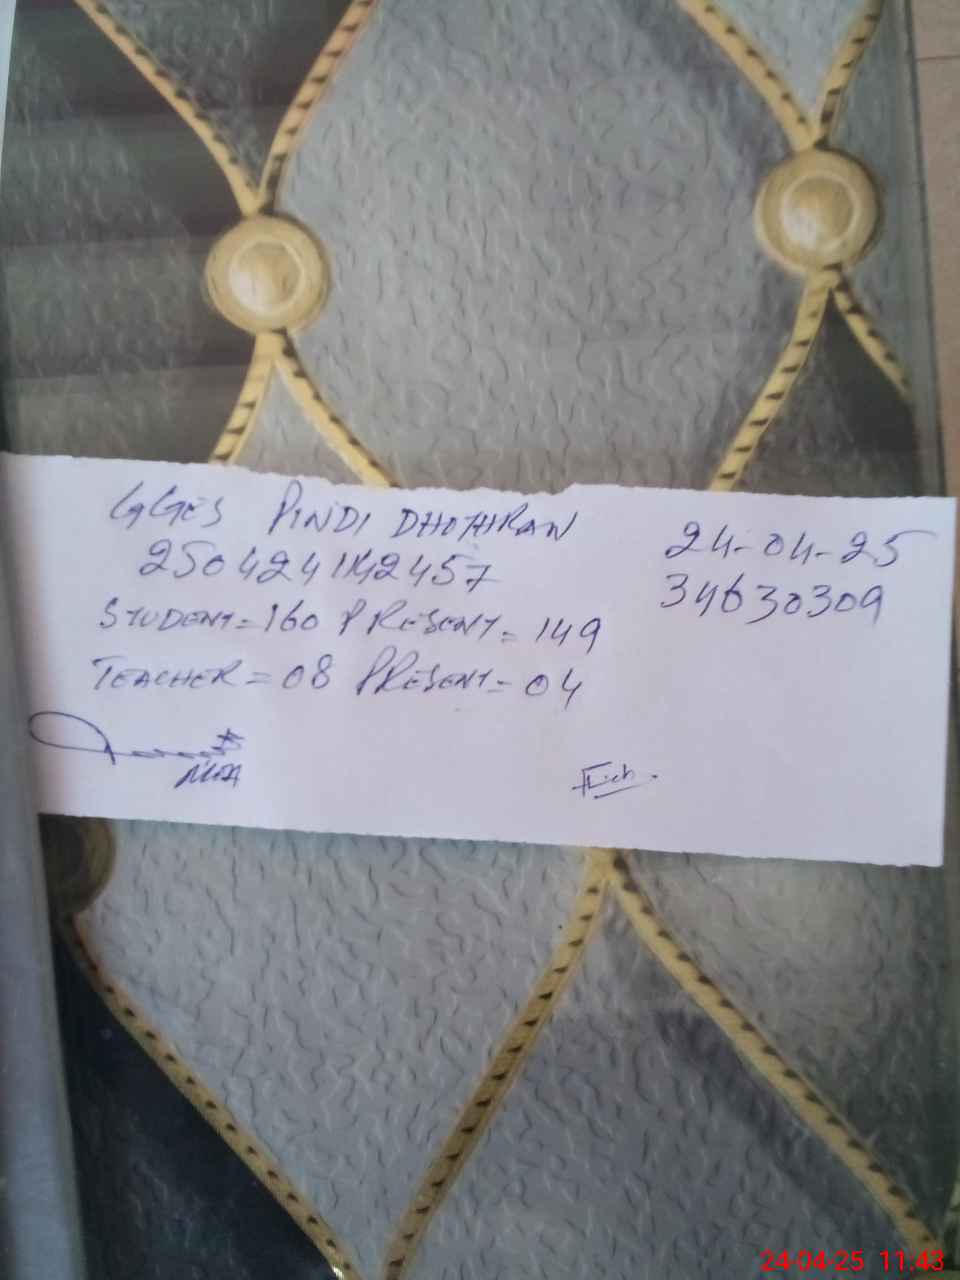 GGES PINDI DHOTHRAN
24-04-25
250424114245 7
34630309
STUDENT=160 PRESENT=149
TEACHER=08 PRESENT=04
MEA
24-04-25 11:43